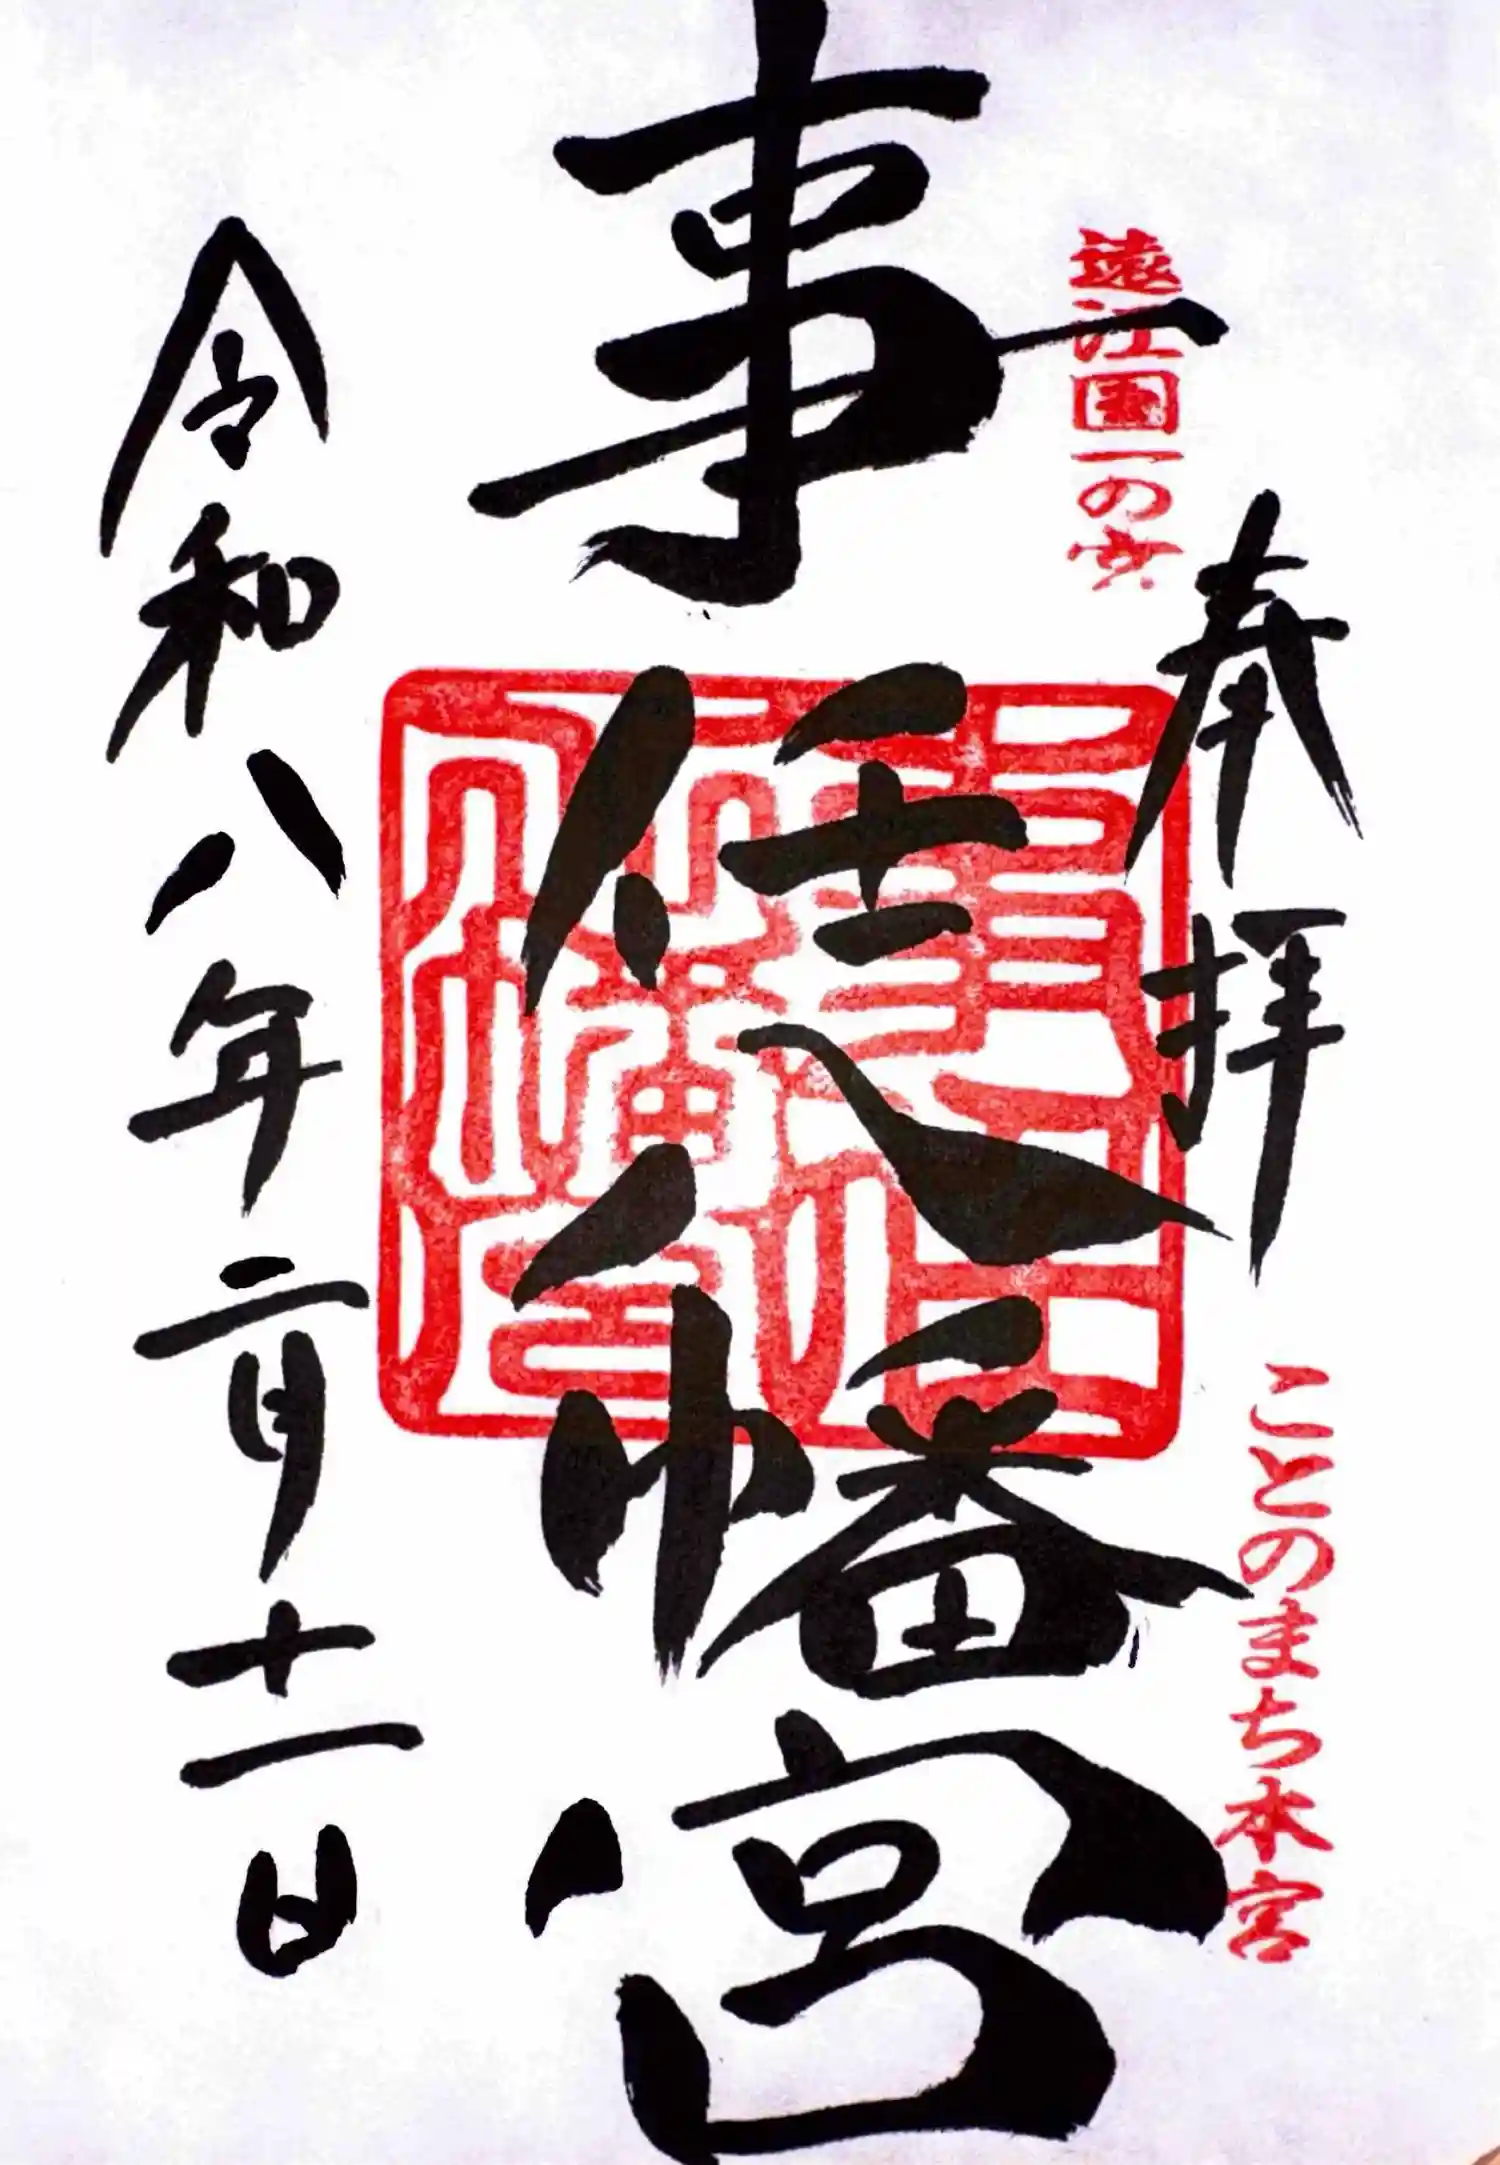 奉拝
ことのまち本宮
遠江国一の宮
事任八幡宮
事任八幡宮
令和八年二月十一日